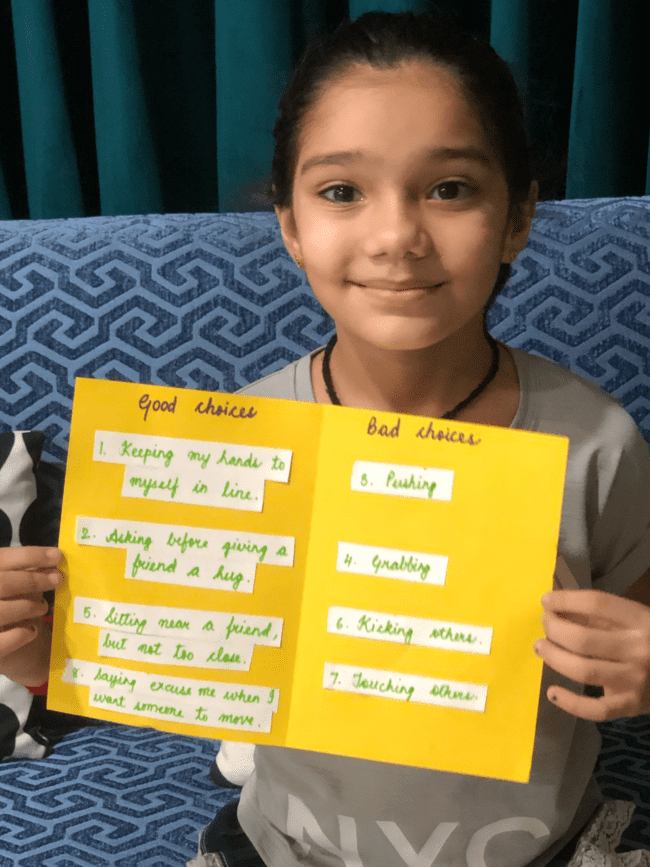 Good choices
1. Keeping my hands to
myself in line.
2. Asking before giving a
friend a hug.
5. Sitting near a friend,
but not too close.
8. Saying excuse me when I
want someone to move.
Bad choices
3. Pushing
4. Grabbing
6. Kicking others.
7. Touching others.
NYC